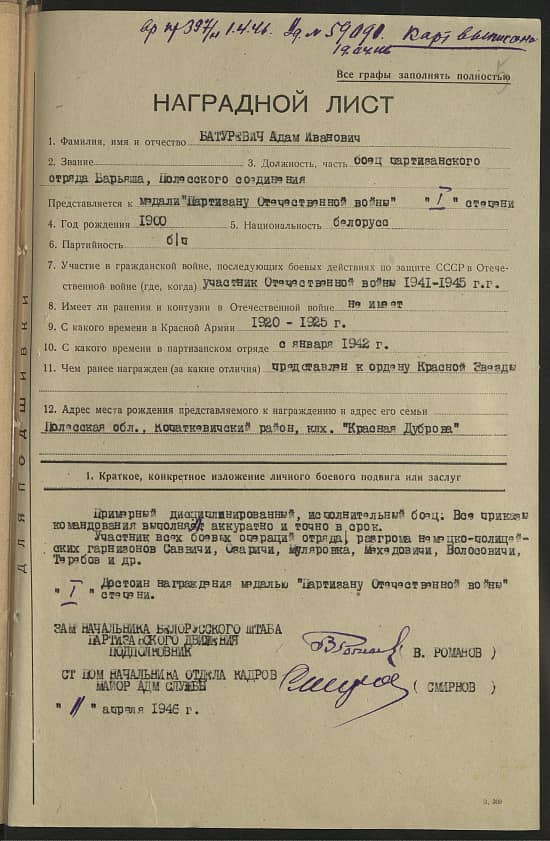 вр пр 397/н 1.4.46. Уд № 59090. Карт выписана
Все графы заполнять полностью
НАГРАДНОЙ ЛИСТ
1. Фамилия, имя и отчество БАТУРЕВИЧ Адам Иванович
2. Звание 3. Должность, часть боец партизанского
отряда Барьяша, Полесского соединения
Представляется к медали "Партизану Отечественной войны" "I" степени
4. Год рождения 1900 5. Национальность белорусс
6. Партийность б/п
7. Участие в гражданской войне, последующих боевых действиях по защите СССР в Отече-
ственной войне (где, когда) участник Отечественной войны 1941-1945 г.г.
8. Имеет ли ранения и контузии в Отечественной войне не имеет
9. С какого времени в Красной Армии 1920 - 1925 г.
10. С какого времени в партизанском отряде с января 1942 г.
11. Чем ранее награжден (за какие отличия) представлен к ордену Красной Звезды
12. Адрес места рождения представляемого к награждению и адрес его семьи
Полесская обл., Копаткевичский район, клх. "Красная Дуброва"
1. Краткое, конкретное изложение личного боевого подвига или заслуг
Примерный дисциплинированный, исполнительный боец. Все приказы
командования выполнял аккуратно и точно в срок.
Участник всех боевых операций отряда, разгрома немецко-полицей-
ских гарнизонов Саввичи, Озаричи, Муляровка, Мехедовичи, Волосовичи,
Теребов и др.
Достоин награждения медалью "Партизану Отечественной войны"
"I" степени.
ЗАМ НАЧАЛЬНИКА БЕЛОРУССКОГО ШТАБА
ПАРТИЗАНСКОГО ДВИЖЕНИЯ
ПОДПОЛКОВНИК ( В. РОМАНОВ )
СТ ПОМ НАЧАЛЬНИКА ОТДЕЛА КАДРОВ
МАЙОР АДМ СЛУЖБЫ ( СМИРНОВ )
"11" апреля 1946 г.
ДЛЯ ПОДШИВКИ